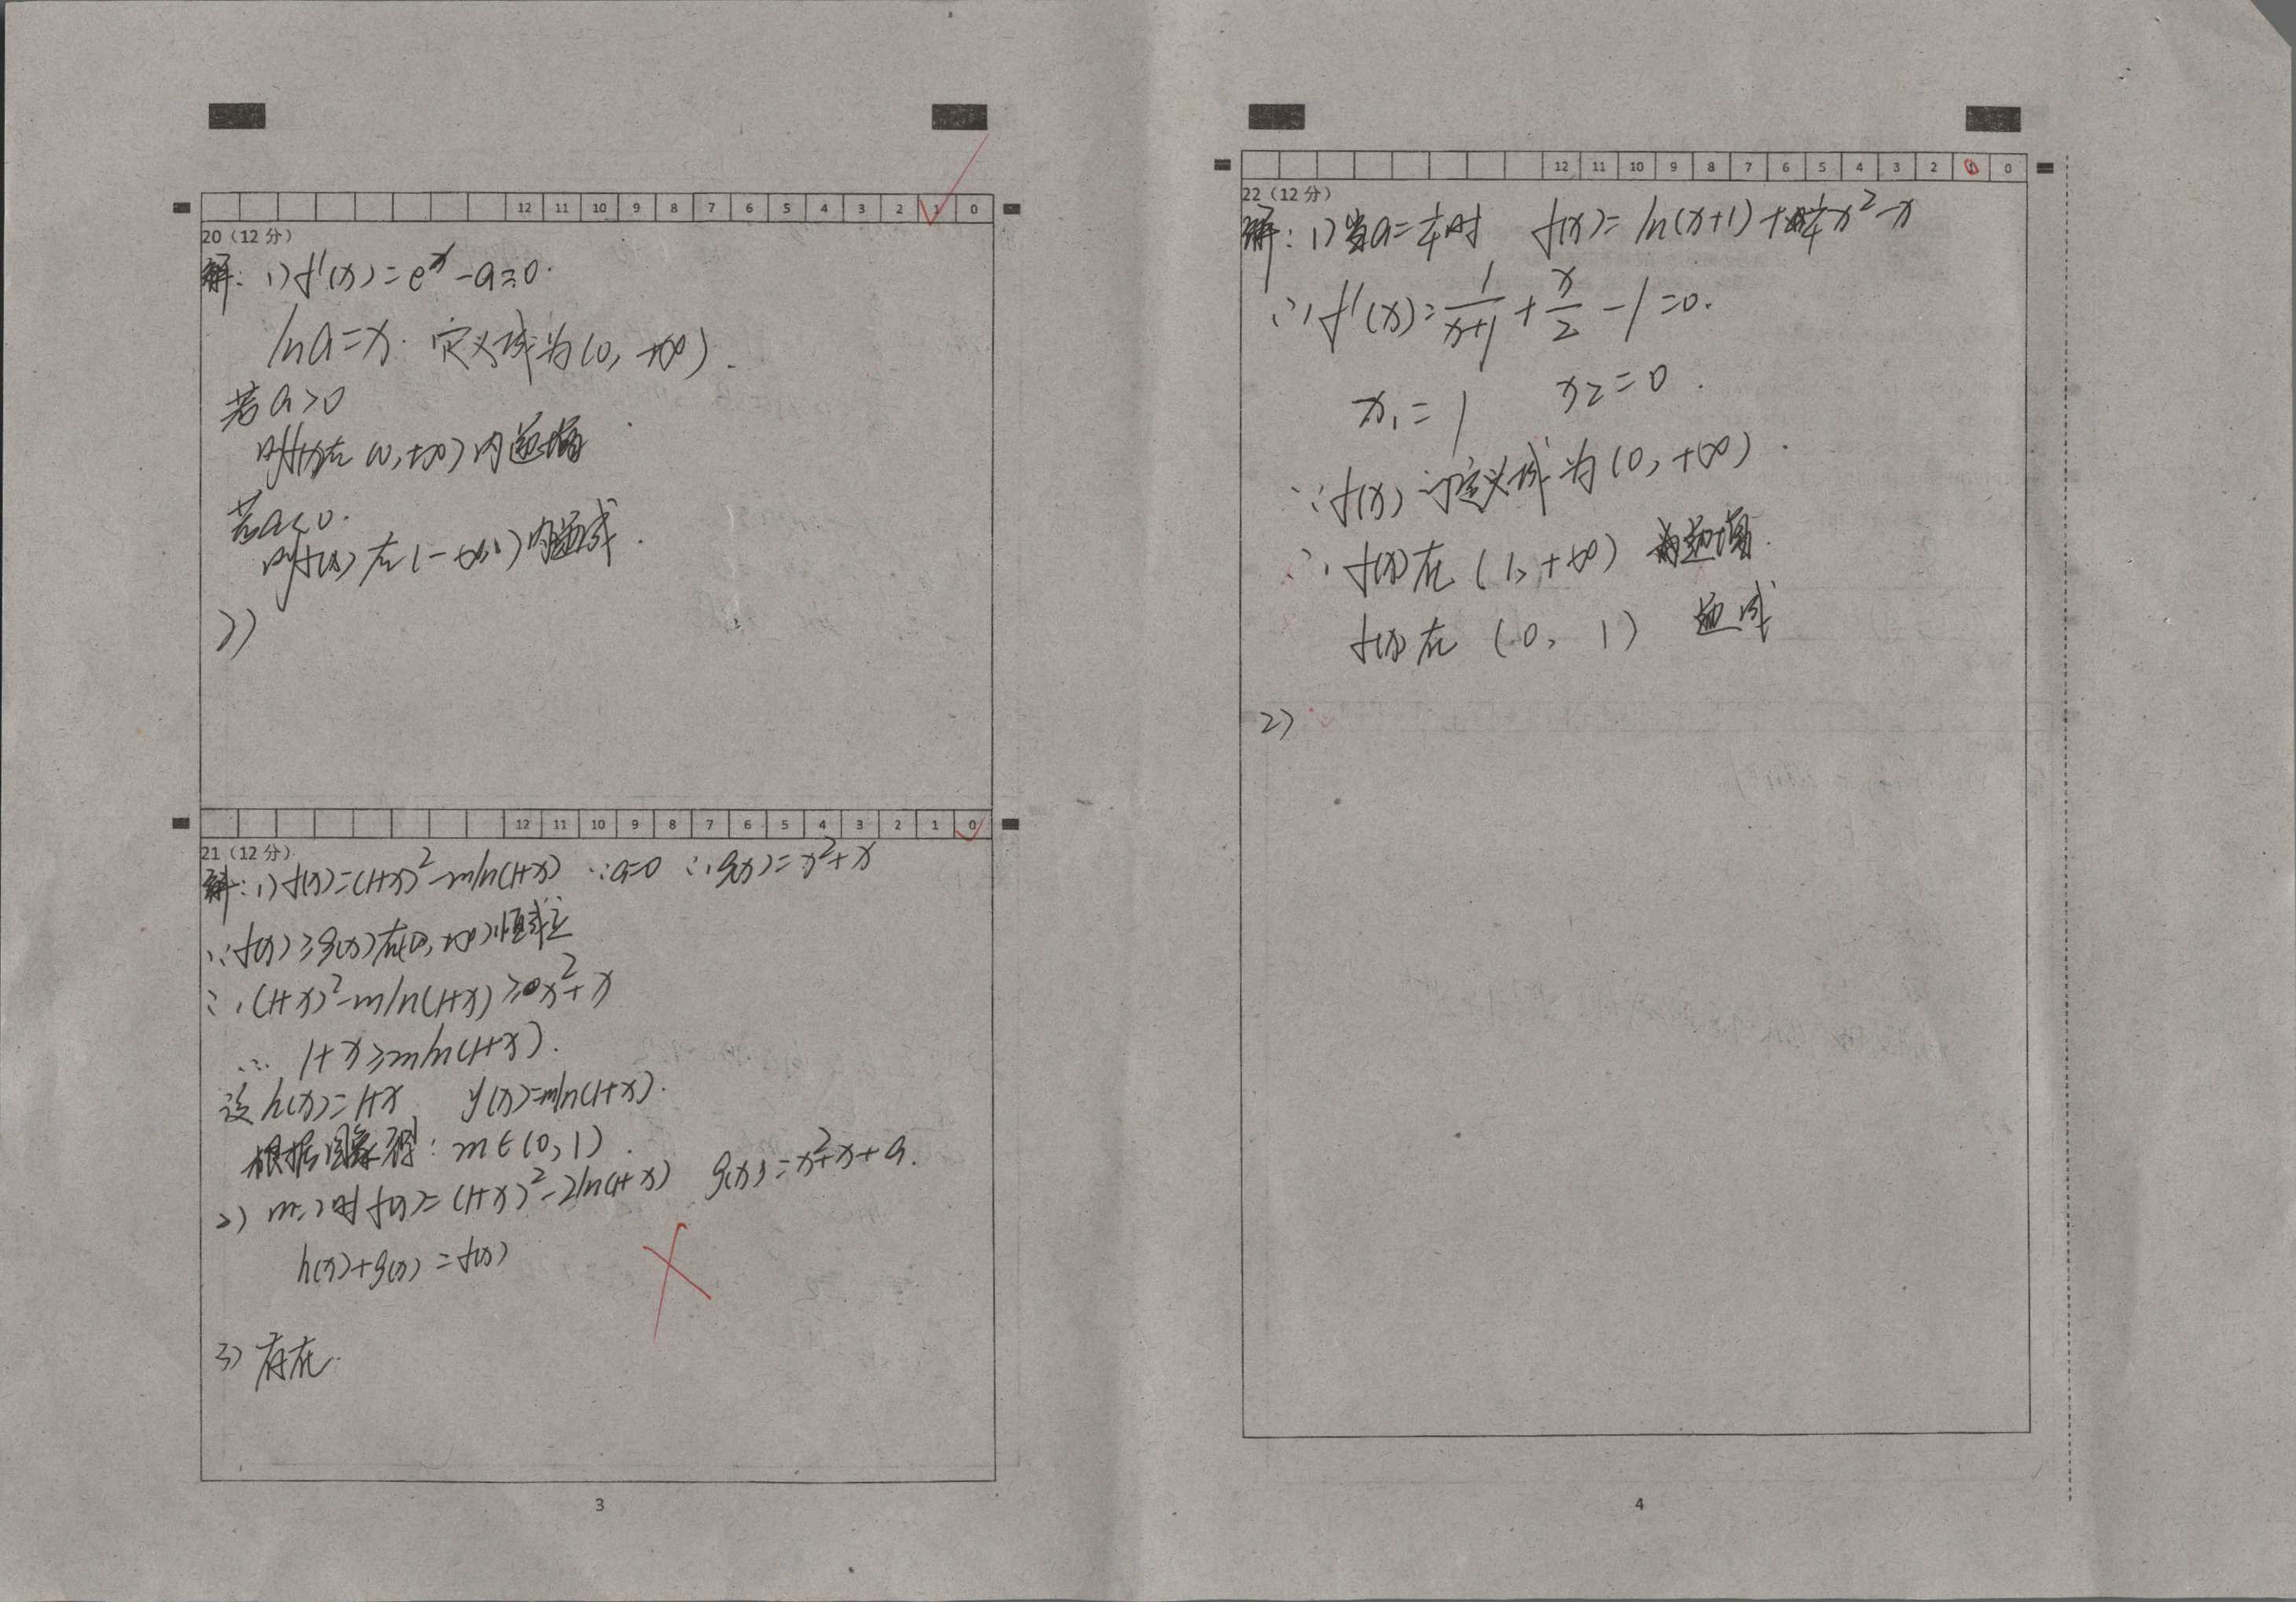 12 11 10 9 8 7 6 5 4 3 2 1 0
20（12 分）
解：1) f'(x)=e^x-a=0.
lna=x. 定义域为(0,+∞).
若a>0
则f(x)在(0,+∞)内递增
若a<0.
则f(x)在(-∞,0)内递减.
2)
12 11 10 9 8 7 6 5 4 3 2 1 0
21（12 分）
解：1) f(x)=(1+x)²-mln(1+x) ∵a=0 ∴g(x)=x²+x
∵f(x)≥g(x)在(0,+∞)恒成立
∴(1+x)²-mln(1+x)≥x²+x
∴ 1+x≥mln(1+x).
设h(x)=1+x y(x)=mln(1+x).
根据图象得：m∈(0,1).
2) m=2时f(x)=(1+x)²-2ln(1+x) g(x)=x²+x+a.
h(x)+g(x)=f(x)
3) 存在.
3
12 11 10 9 8 7 6 5 4 3 2 1 0
22（12 分）
解：1)当a=1/4时 f(x)=ln(x+1)+1/4x²-x
∴f'(x)=1/(x+1)+x/2-1=0.
x₁=1 x₂=0.
∵f(x)的定义域为(0,+∞).
∴f(x)在(1,+∞)为递增.
f(x)在(0,1)递减
2)
4